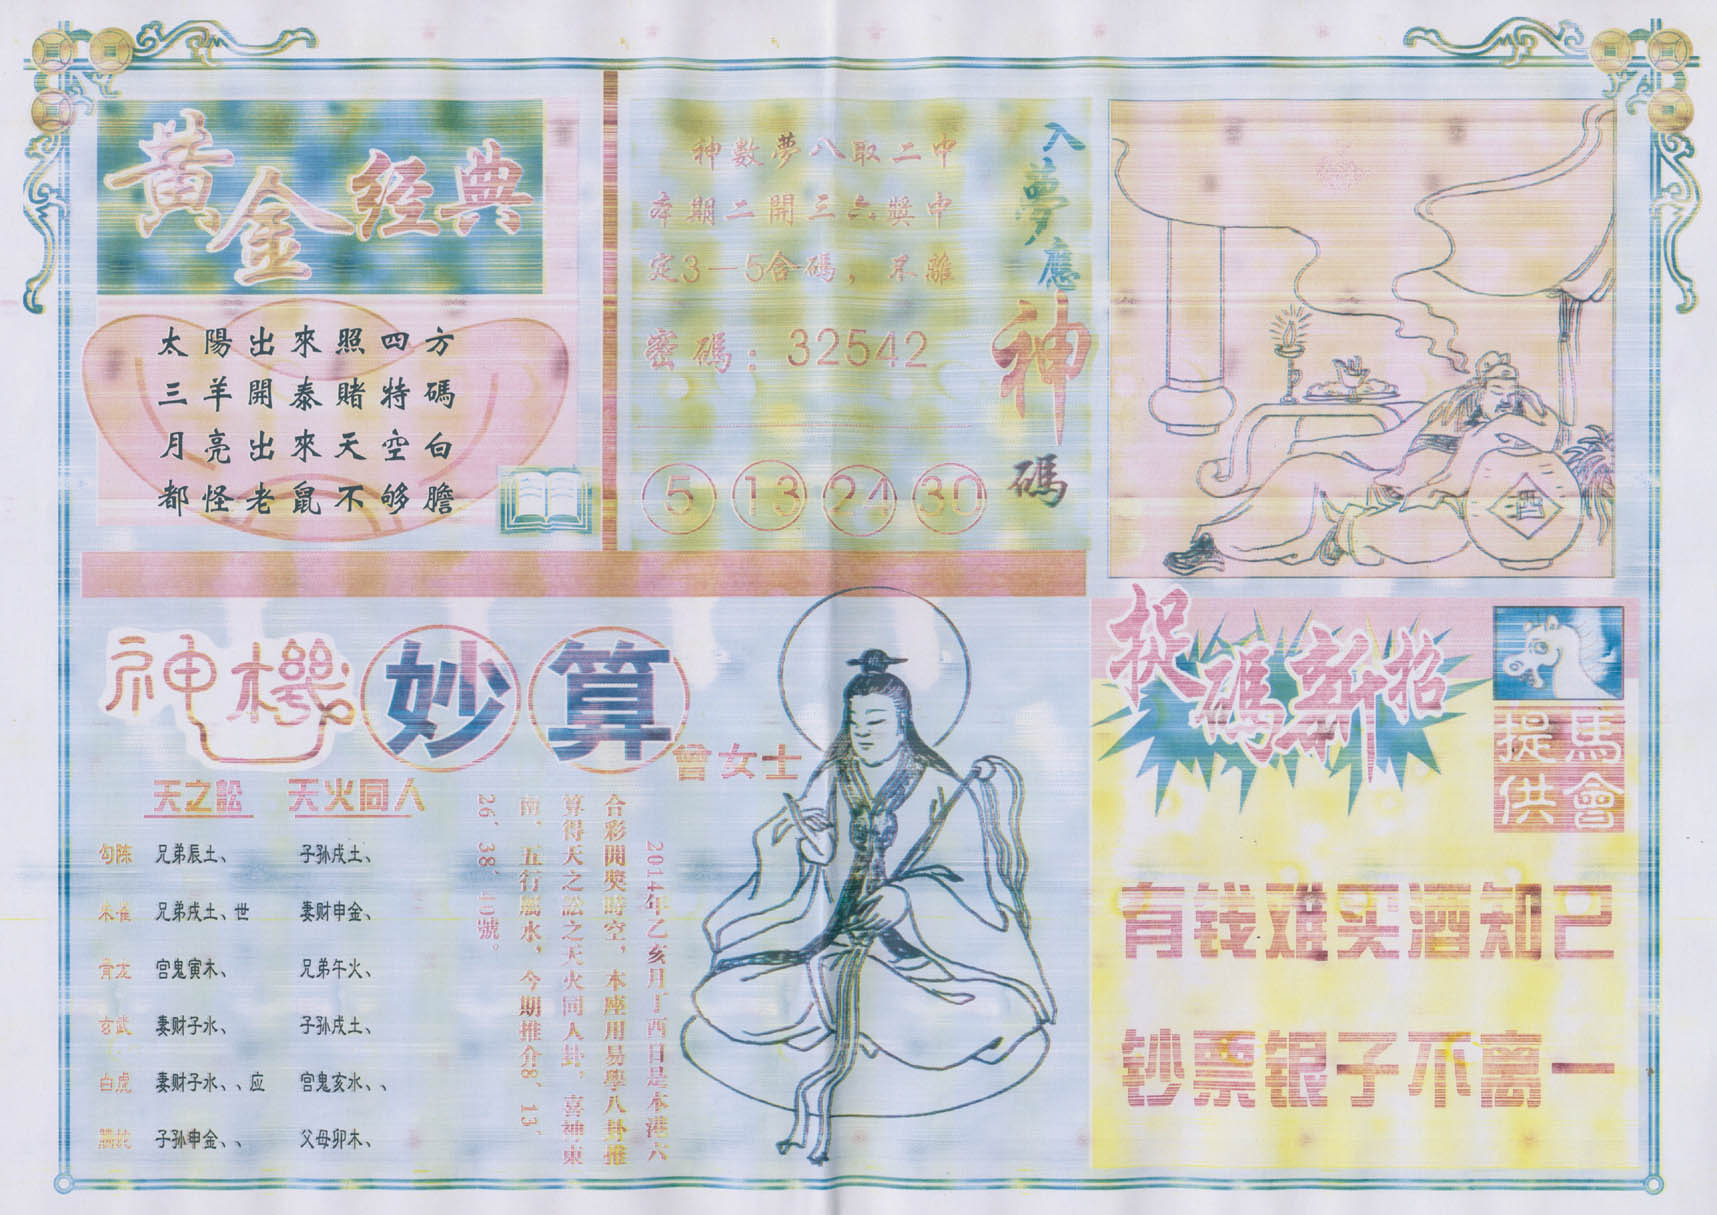 黄金经典
太陽出來照四方
三羊開泰賭特碼
月亮出來天空白
都怪老鼠不够膽
入夢應神碼
神數夢八取二中
本期二開三六獎中
定3—5合碼，不離
密碼：32542
5 13 24 30
酒
神機妙算
曾女士
天之訟 天火同人
勾陈 兄弟辰土、 子孙戌土、
朱雀 兄弟戌土、世 妻财申金、
青龙 宫鬼寅木、 兄弟午火、
玄武 妻财子水、 子孙戌土、
白虎 妻财子水、、应 宫鬼亥水、、
螣蛇 子孙申金、、 父母卯木、
2014年乙亥月丁酉日是本港六
合彩開獎時空，本座用易學八卦推
算得天之訟之天火同人卦，喜神東
南、五行屬水，今期推介8、13、
26、38、40號。
捉碼新招
馬會提供
有钱难买酒知己
钞票银子不离一